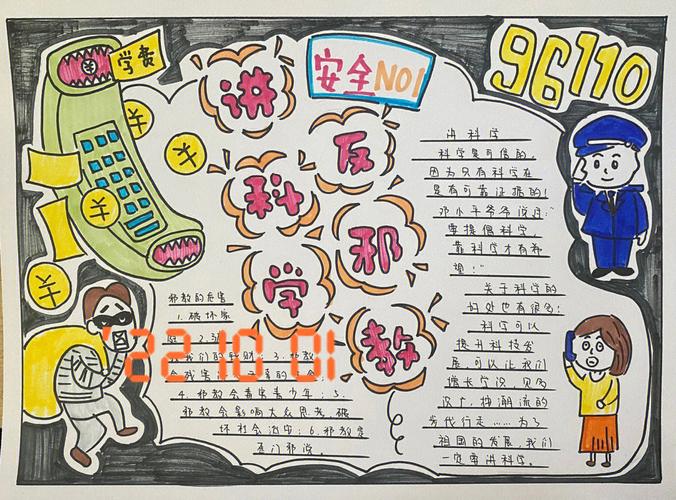 学费
安全NO1
96110
讲科学
反邪教
讲科学
科学是可信的,
因为只有科学在
是有可靠证据的!
邓小平爷爷说过:
"要提倡科学,
靠科学才有希
望:"
关于科学的
好处也有很多:
科学可以
提升科技发
展,可以让我们
增长学识,见多
识广,神潮流的
为代行走……为了
祖国的发展,我们
一定要讲科学。
邪教的危害
1.破坏家
庭;2.
我们的钱财;3.邪教
会残害
4.邪教会毒害青少年;5.
邪教会影响大众思考,破
坏社会治安;6.邪教是
歪门邪说。
'22.10.01